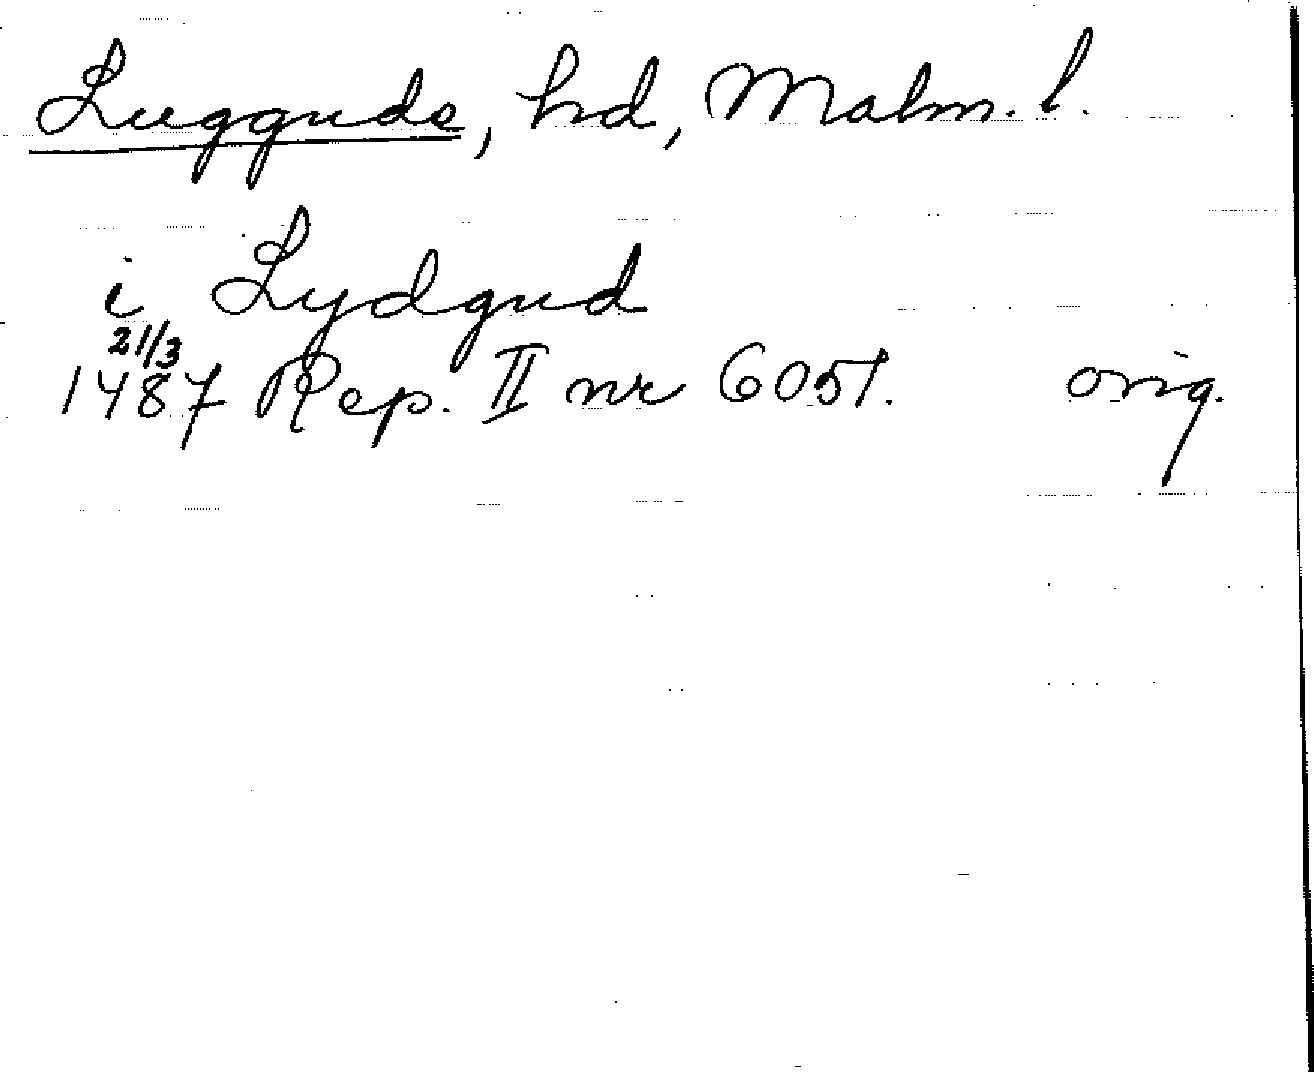 Luggude, hd, Malm. l.
i Lydgud
21/3
1487 Rep. II nr 6051. orig.